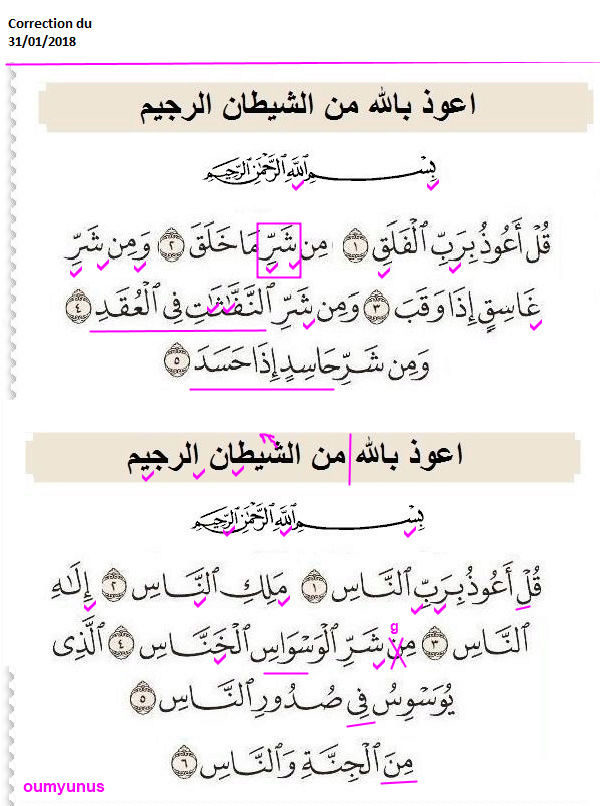 Correction du
31/01/2018
اعوذ بالله من الشيطان الرجيم
بِسْمِ اللَّهِ الرَّحْمَٰنِ الرَّحِيمِ
قُلْ أَعُوذُ بِرَبِّ الْفَلَقِ ١ مِن شَرِّ مَا خَلَقَ ٢ وَمِن شَرِّ
غَاسِقٍ إِذَا وَقَبَ ٣ وَمِن شَرِّ النَّفَّٰثَٰتِ فِى الْعُقَدِ ٤
وَمِن شَرِّ حَاسِدٍ إِذَا حَسَدَ ٥
اعوذ بالله من الشيطان الرجيم
بِسْمِ اللَّهِ الرَّحْمَٰنِ الرَّحِيمِ
قُلْ أَعُوذُ بِرَبِّ النَّاسِ ١ مَلِكِ النَّاسِ ٢ إِلَٰهِ
النَّاسِ ٣ مِن شَرِّ الْوَسْوَاسِ الْخَنَّاسِ ٤ الَّذِى
يُوَسْوِسُ فِى صُدُورِ النَّاسِ ٥
مِنَ الْجِنَّةِ وَالنَّاسِ ٦
oumyunus